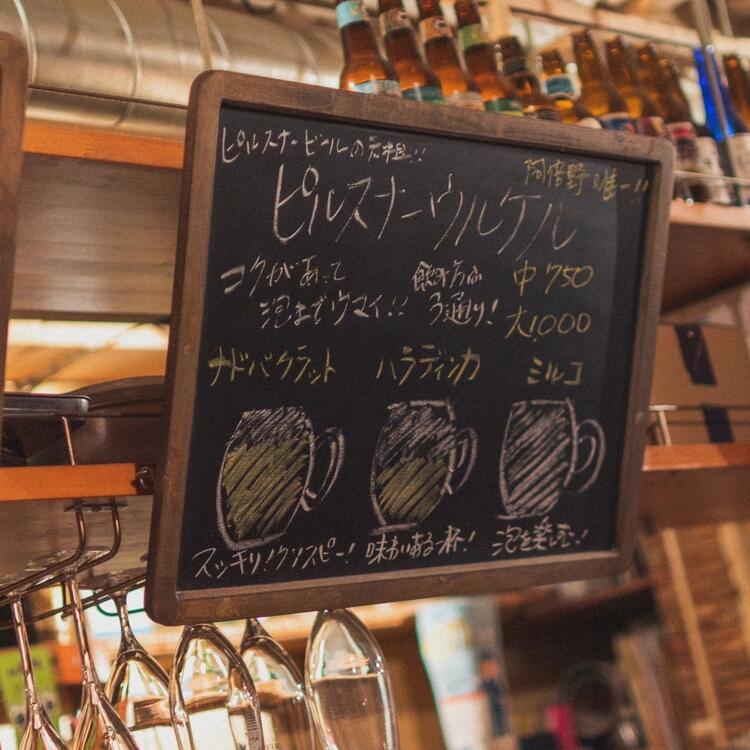 ピルスナービールの元祖!!
阿倍野唯一!!
ピルスナーウルケル
コクがあって
泡までウマイ!!
飲み方は
3通り!
中 750
大 1,000
ナドバケラット
ハラディンカ
ミルコ
スッキリ!クリスピー!
味わいある一杯!
泡を楽しむ!